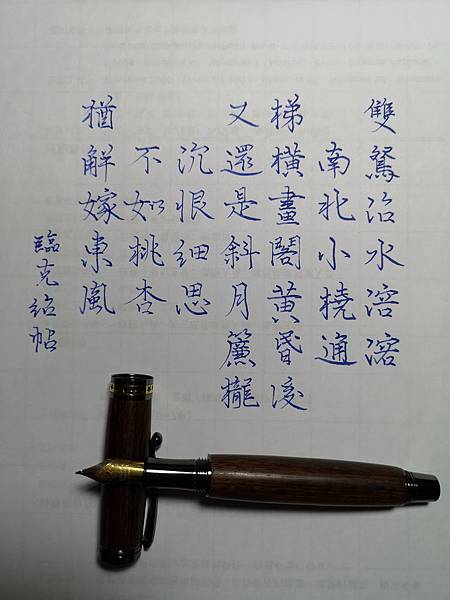 雙鴛沼水溶溶
南北小橈通
梯橫畫閣黃昏後
又還是斜月簾櫳
沉恨細思
不如桃杏
猶解嫁東風
臨克紹帖